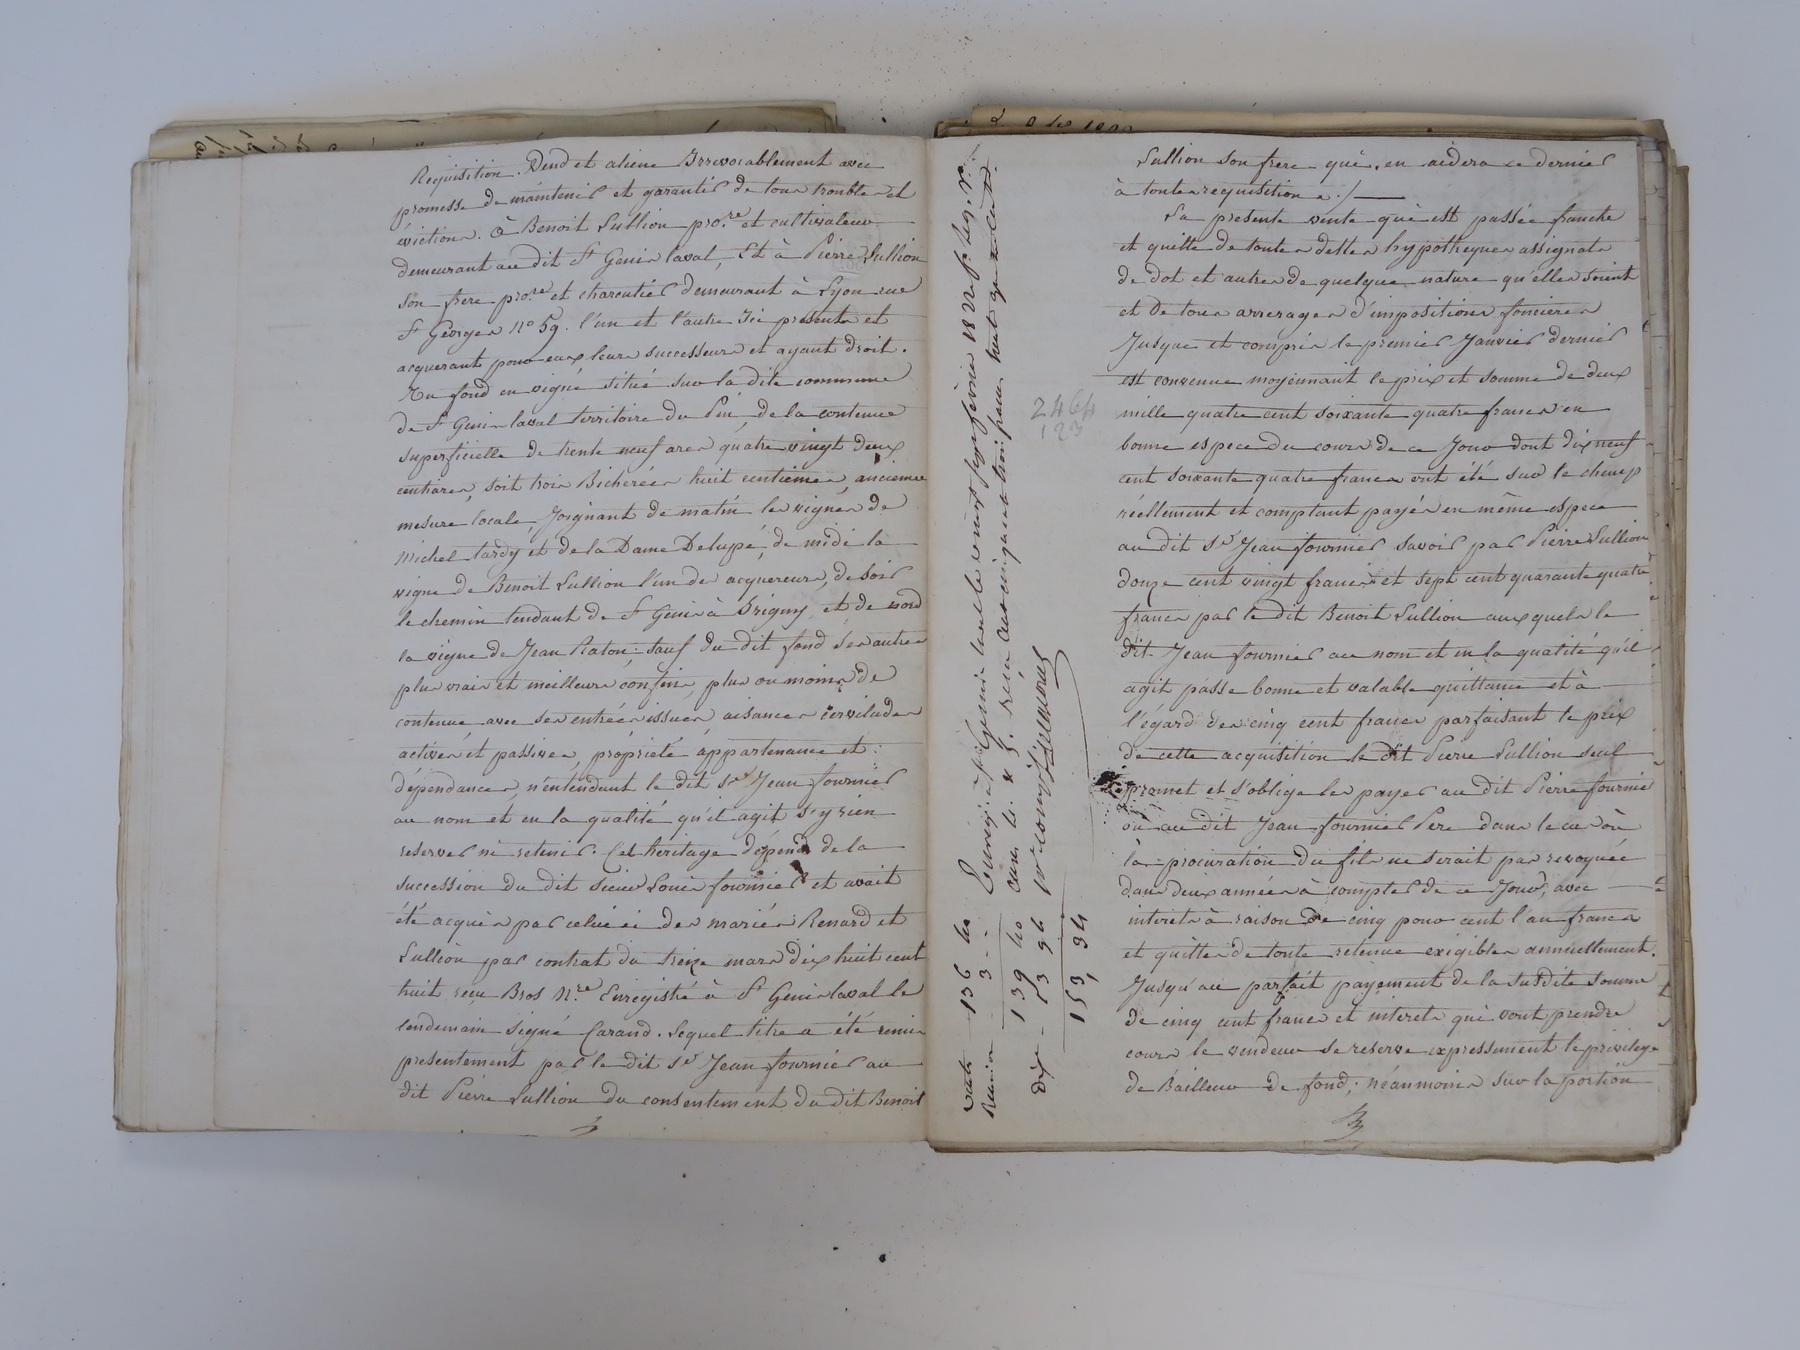 Requisition. Vend et aliene Irrevocablement avec
promesse de maintenir et garantir de tous troubles et
évictions. à Benoit Lullion pro.re et cultivateur
demeurant au dit St Genis laval, Et à Pierre Lullion
son frere pro.re et charcutier demeurant à Lyon rue
St Georges No 59. l'un et l'autre Ici présents et
acquerant pour eux leurs successeurs et ayant droit.
Un fond en vigne situé sur la dite commune
de St Genis laval territoire du Pin, de la contenue
superficielle de trente neuf ares quatre vingt deux
centiares, soit trois Bicherées huit centiemes, ancienne
mesure locale, Joignant de matin les vignes de
Michel tardy et de la Dame Delupé, de midi la
vigne de Benoit Lullion l'un des acquereurs, de soir
le chemin tendant de St Genis à Irigny, et de nord
la vigne de Jean Raton; sauf du dit fond ses autres
plus vrais et meilleurs confins, plus ou moins de
contenue avec ses entrées issues, aisances servitudes
actives et passives, propriété appartenances et
dépendances, n'entendant le dit Sr Jean fournier
au nom et en la qualité qu'il agit s'y rien
reserver ni retenir. Cet héritage dépend de la
succession du dit sieur Louis fournier et avait
été acquis par celui ci des mariés Renard et
Lullion par contrat du treize mars dix huit cent
huit reçu Bros N.re Enregistré à St Genis laval le
lendemain signé Carand. Lequel titre a été remis
presentement par le dit Sr Jean fournier au
dit Pierre Lullion du consentement du dit Benoit
Vente 136 40
3
139 40
Dix 13 94
153, 34
2464
123
Lullion son frere qui en aidera ce dernier
à toutes requisitions ./
La presente vente qui est passée franche
et quitte de toutes dettes hypotheques assignats
de dot et autres de quelque nature qu'elles soient
et de tous arrerages d'impositions foncieres
Jusque et compris le premier Janvier dernier
est convenue moyennant le prix et somme de deux
mille quatre cent soixante quatre francs en
bonne espece du cours de ce Jour dont dix neuf
cent soixante quatre francs ont été sur le champ
réellement et comptant payés en même espece
au dit Sr Jean fournier savoir par Pierre Lullion
douze cent vingt francs et sept cent quarante quatre
francs par le dit Benoit Lullion auxquels le
dit Jean fournier au nom et en la qualité qu'il
agit passe bonne et valable quittance et à
l'égard des cinq cent francs parfaisant le prix
de cette acquisition le dit Pierre Lullion seul
promet et s'oblige les payer au dit Pierre fournier
ou au dit Jean fournier Pere dans le cas où
la procuration du fils ne serait pas revoquée
dans deux années à compter de ce Jour, avec
interets à raison de cinq pour cent l'an francs
et quittes de toute retenue exigibles annuellement.
Jusqu'au parfait payement de la susdite somme
de cinq cent francs et interets qui vont prendre
cours le vendeur se reserve expressement le privilege
de Bailleur de fond; néanmoins sur la portion